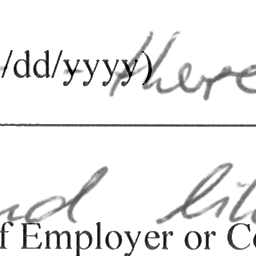 /dd/yyyy) there
nd lik
f Employer or Co